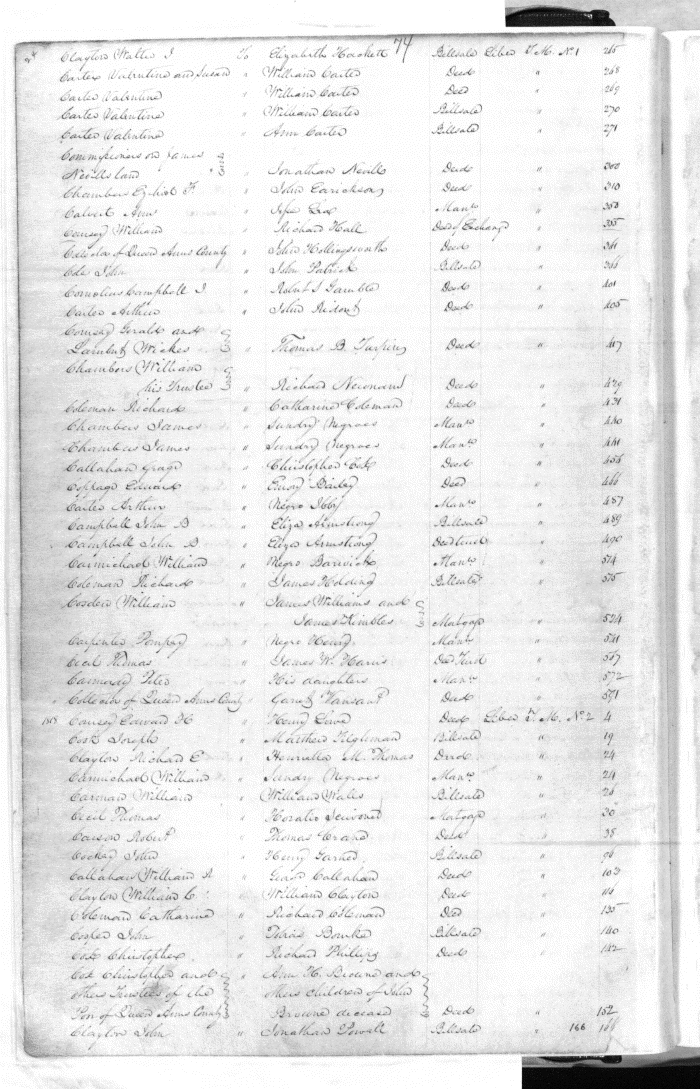 74
Clayton Walter J To Elizabeth Hackett Billsale Liber T. M. No 1 265
Carter Valentine and Susan " William Carter Deed " 268
Carter Valentine " William Carter Deed " 269
Carter Valentine " William Carter Billsale " 270
Carter Valentine " Ann Carter Billsale " 271
Commissioners on James
Nevills land " Jonathan Nevill Deed " 300
Chambers Ezekiel F " John Earickson Deed " 310
Calvert Ann " Cox Manr 350
Comegy William Richard Hall Deed of Exchange " 355
Collector of Queen Anns County " John Hollingsworth Deed " 361
Cole John " John Patrick Billsale " 366
Cornelius Campbell J " Robert S Gamble Deed " 401
Carter Arthur " John Ridout Deed " 405
Comegy Gerald and
Lambert Wickes " Thomas B. Turpin Deed " 417
Chambers William
his Trustee " Richard Newnam Deed " 429
Coleman Richard " Catharine Coleman Deed " 431
Chambers James " Sundry Negroes Manr " 440
Chambers James " Sundry Negroes Manr " 441
Callahan " Christopher Cox Deed " 456
Coppage Edward " Emory Bailey Deed " 466
Carter Arthur " Negro Ibby Manr " 487
Campbell John B " Eliza Armstrong Billsale " 489
Campbell John B " Eliza Armstrong Deed " 490
Carmichael William " Negro Barwick Manr " 574
Coleman Richard " James Holding Billsale " 575
Cosden William " James Williams and
" James Kimbles Matgage " 524
Carpenter Pompey " Negro Henry Manr " 541
Cecil Thomas " James W. Harris Deed " 567
Peter " His daughters Manr " 572
Collector of Queen Anns County " Garrett Vansant Deed " 591
1818 Comegy Edward H " Henry Deed Liber T. M. No. 2 4
Cox Joseph " Tilghman Billsale " 19
Clayton Richard E " Henrietta M. Thomas Deed " 24
Carmichael William " Sundry Negroes Manr " 24
Carman William " William Walls Billsale " 26
Cecil Thomas " Horatio Matgage " 30
Carson Robert " Thomas Deed " 38
Cookey John " Henry Garned Billsale " 96
Callahan William A " Callahan Deed " 103
Clayton William C " William Clayton Deed " 116
Coleman Catharine " Richard Coleman Deed " 135
Cooper John " Bourke Billsale " 140
Cox Christopher " Richard Phillips Deed " 142
Cox Christopher and " Ann H. Browne and
others Trustees of the others children of John
Poor of Queen Anns County Browne deceased Deed " 152
Clayton John " Jonathan Powell Billsale " 166 166